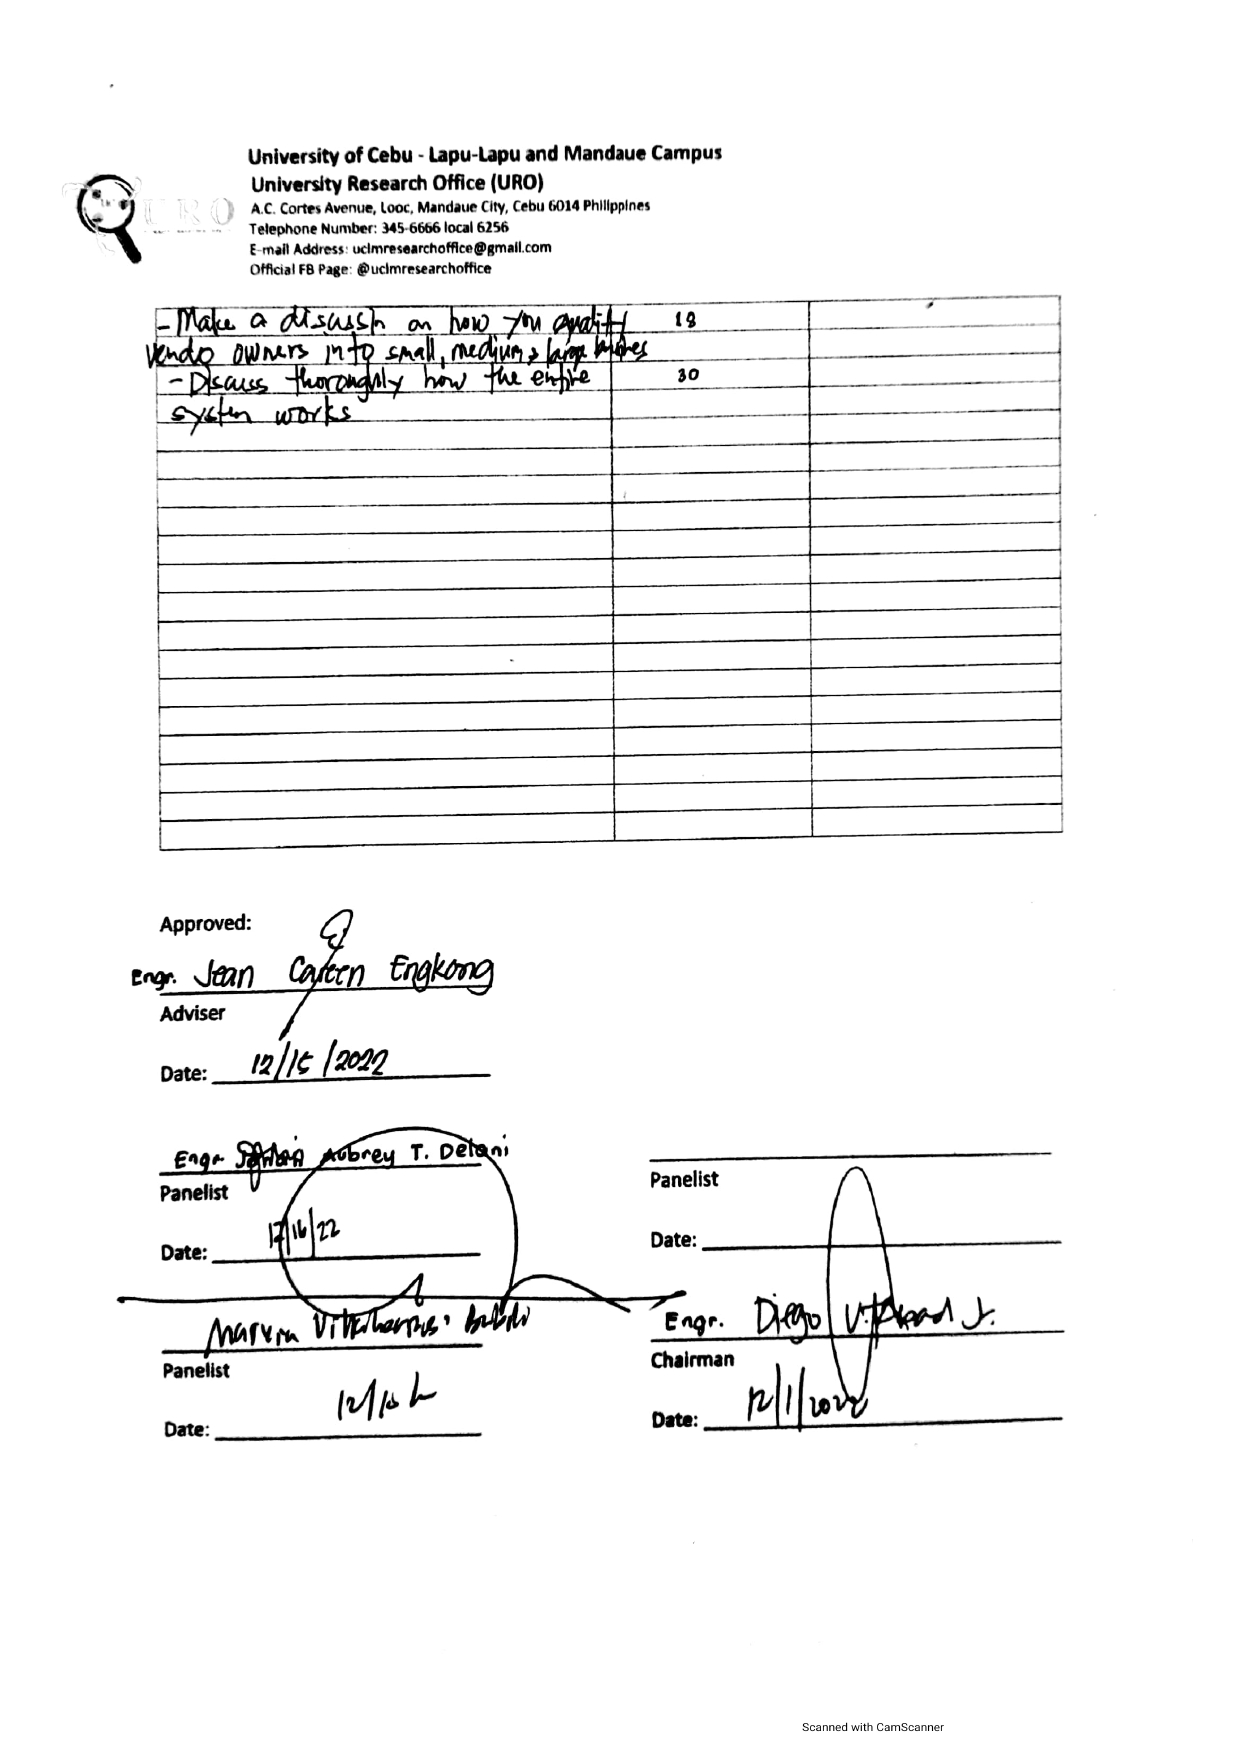 University of Cebu - Lapu-Lapu and Mandaue Campus
University Research Office (URO)
URO
A.C. Cortes Avenue, Looc, Mandaue City, Cebu 6014 Philippines
Telephone Number: 345-6666 local 6256
E-mail Address: uclmresearchoffice@gmail.com
Official FB Page: @uclmresearchoffice
- Make a discussn on how you qualify 18
vendo owners into small, medium, large
- Discuss thoroughly how the entire 30
system works
Approved:
Engr. Jean Careen Engkong
Adviser
Date: 12/15/2022
Engr. Aubrey T. Delani
Panelist
Date: 12/16/22
Panelist
Date:
Marvin
Panelist
Date:
Engr. Diego V. Abad Jr.
Chairman
Date: 12/1/2022
Scanned with CamScanner